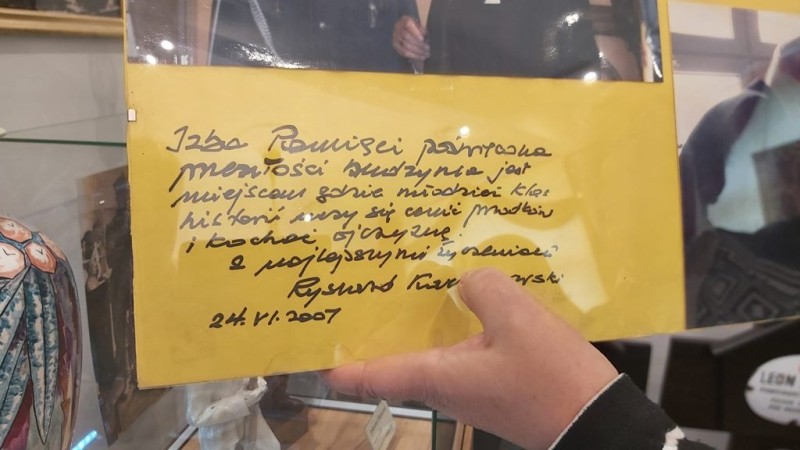 Izba Pamięci poświęcona
przeszłości Budzynia jest
miejscem gdzie młodzież
historii uczy się cenić przodków
i kochać ojczyznę.
z najlepszymi życzeniami
Ryszard
24.VI.2007
LEON